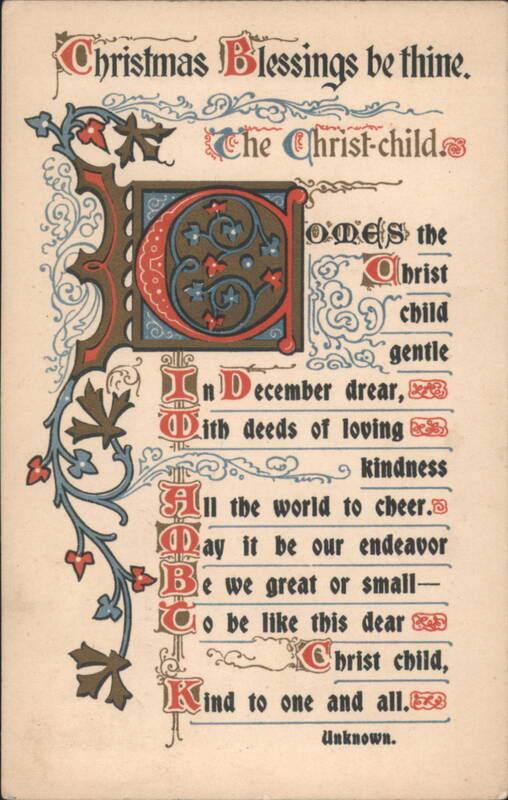 Christmas Blessings be thine.
The Christ-child.
Comes the
Christ
child
gentle
In December drear,
With deeds of loving
kindness
All the world to cheer.
May it be our endeavor
Be we great or small—
To be like this dear
Christ child,
Kind to one and all.
Unknown.